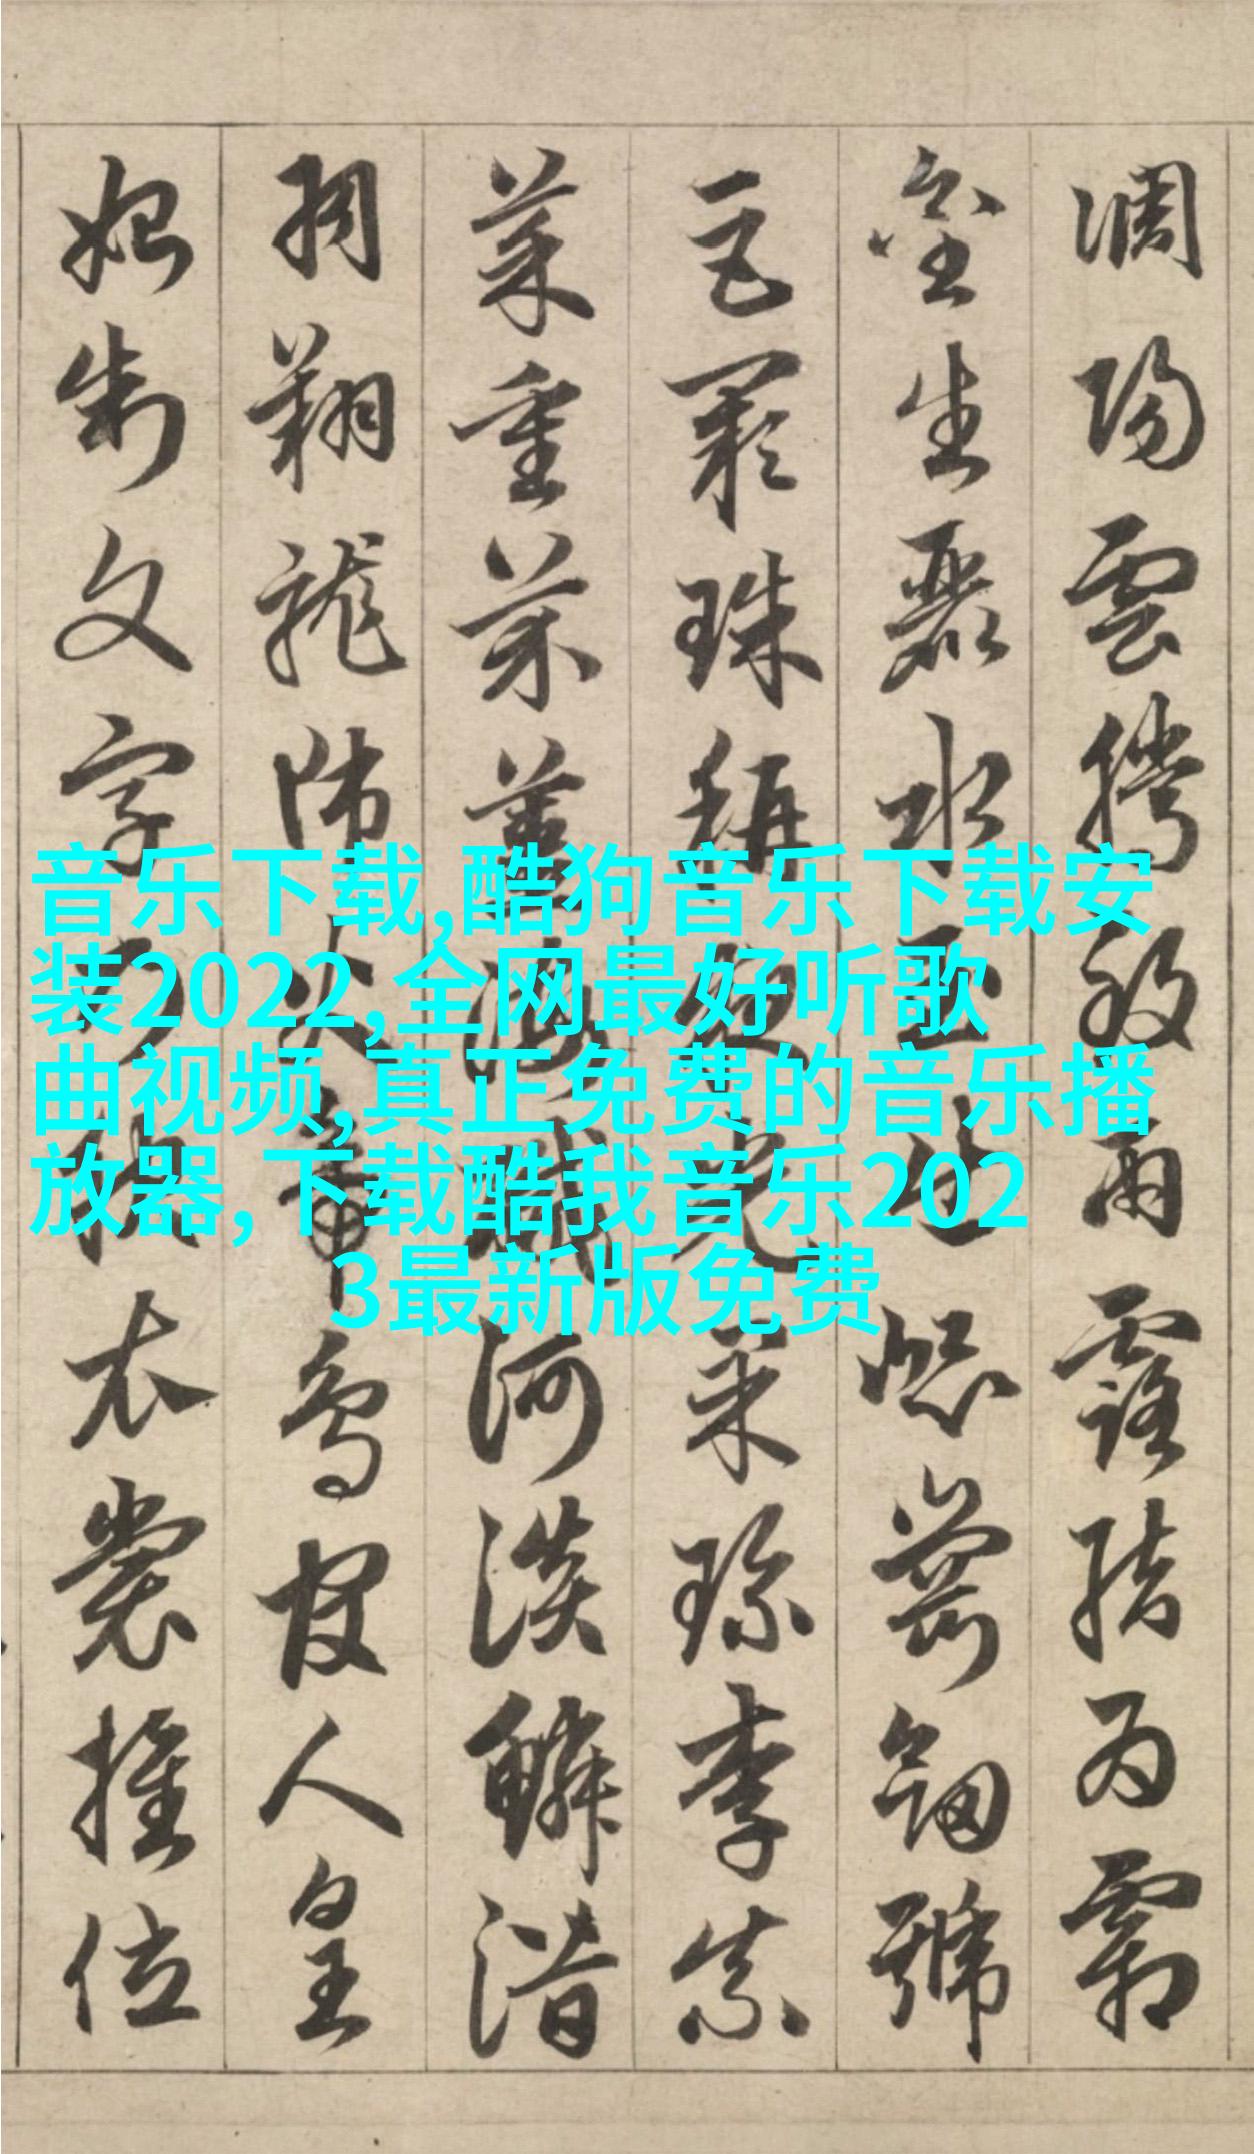 音乐下载,酷狗音乐下载安
装2022,全网最好听歌
曲视频,真正免费的音乐播
放器,下载酷我音乐202
3最新版免费
調陽雲騰致雨露結為霜
金生麗水玉出崑崗劍號
巨闕珠稱夜光菓珍李柰
菜重芥薑海鹹河淡鱗潛
羽翔龍師火帝鳥官人皇
始制文字乃服衣裳推位